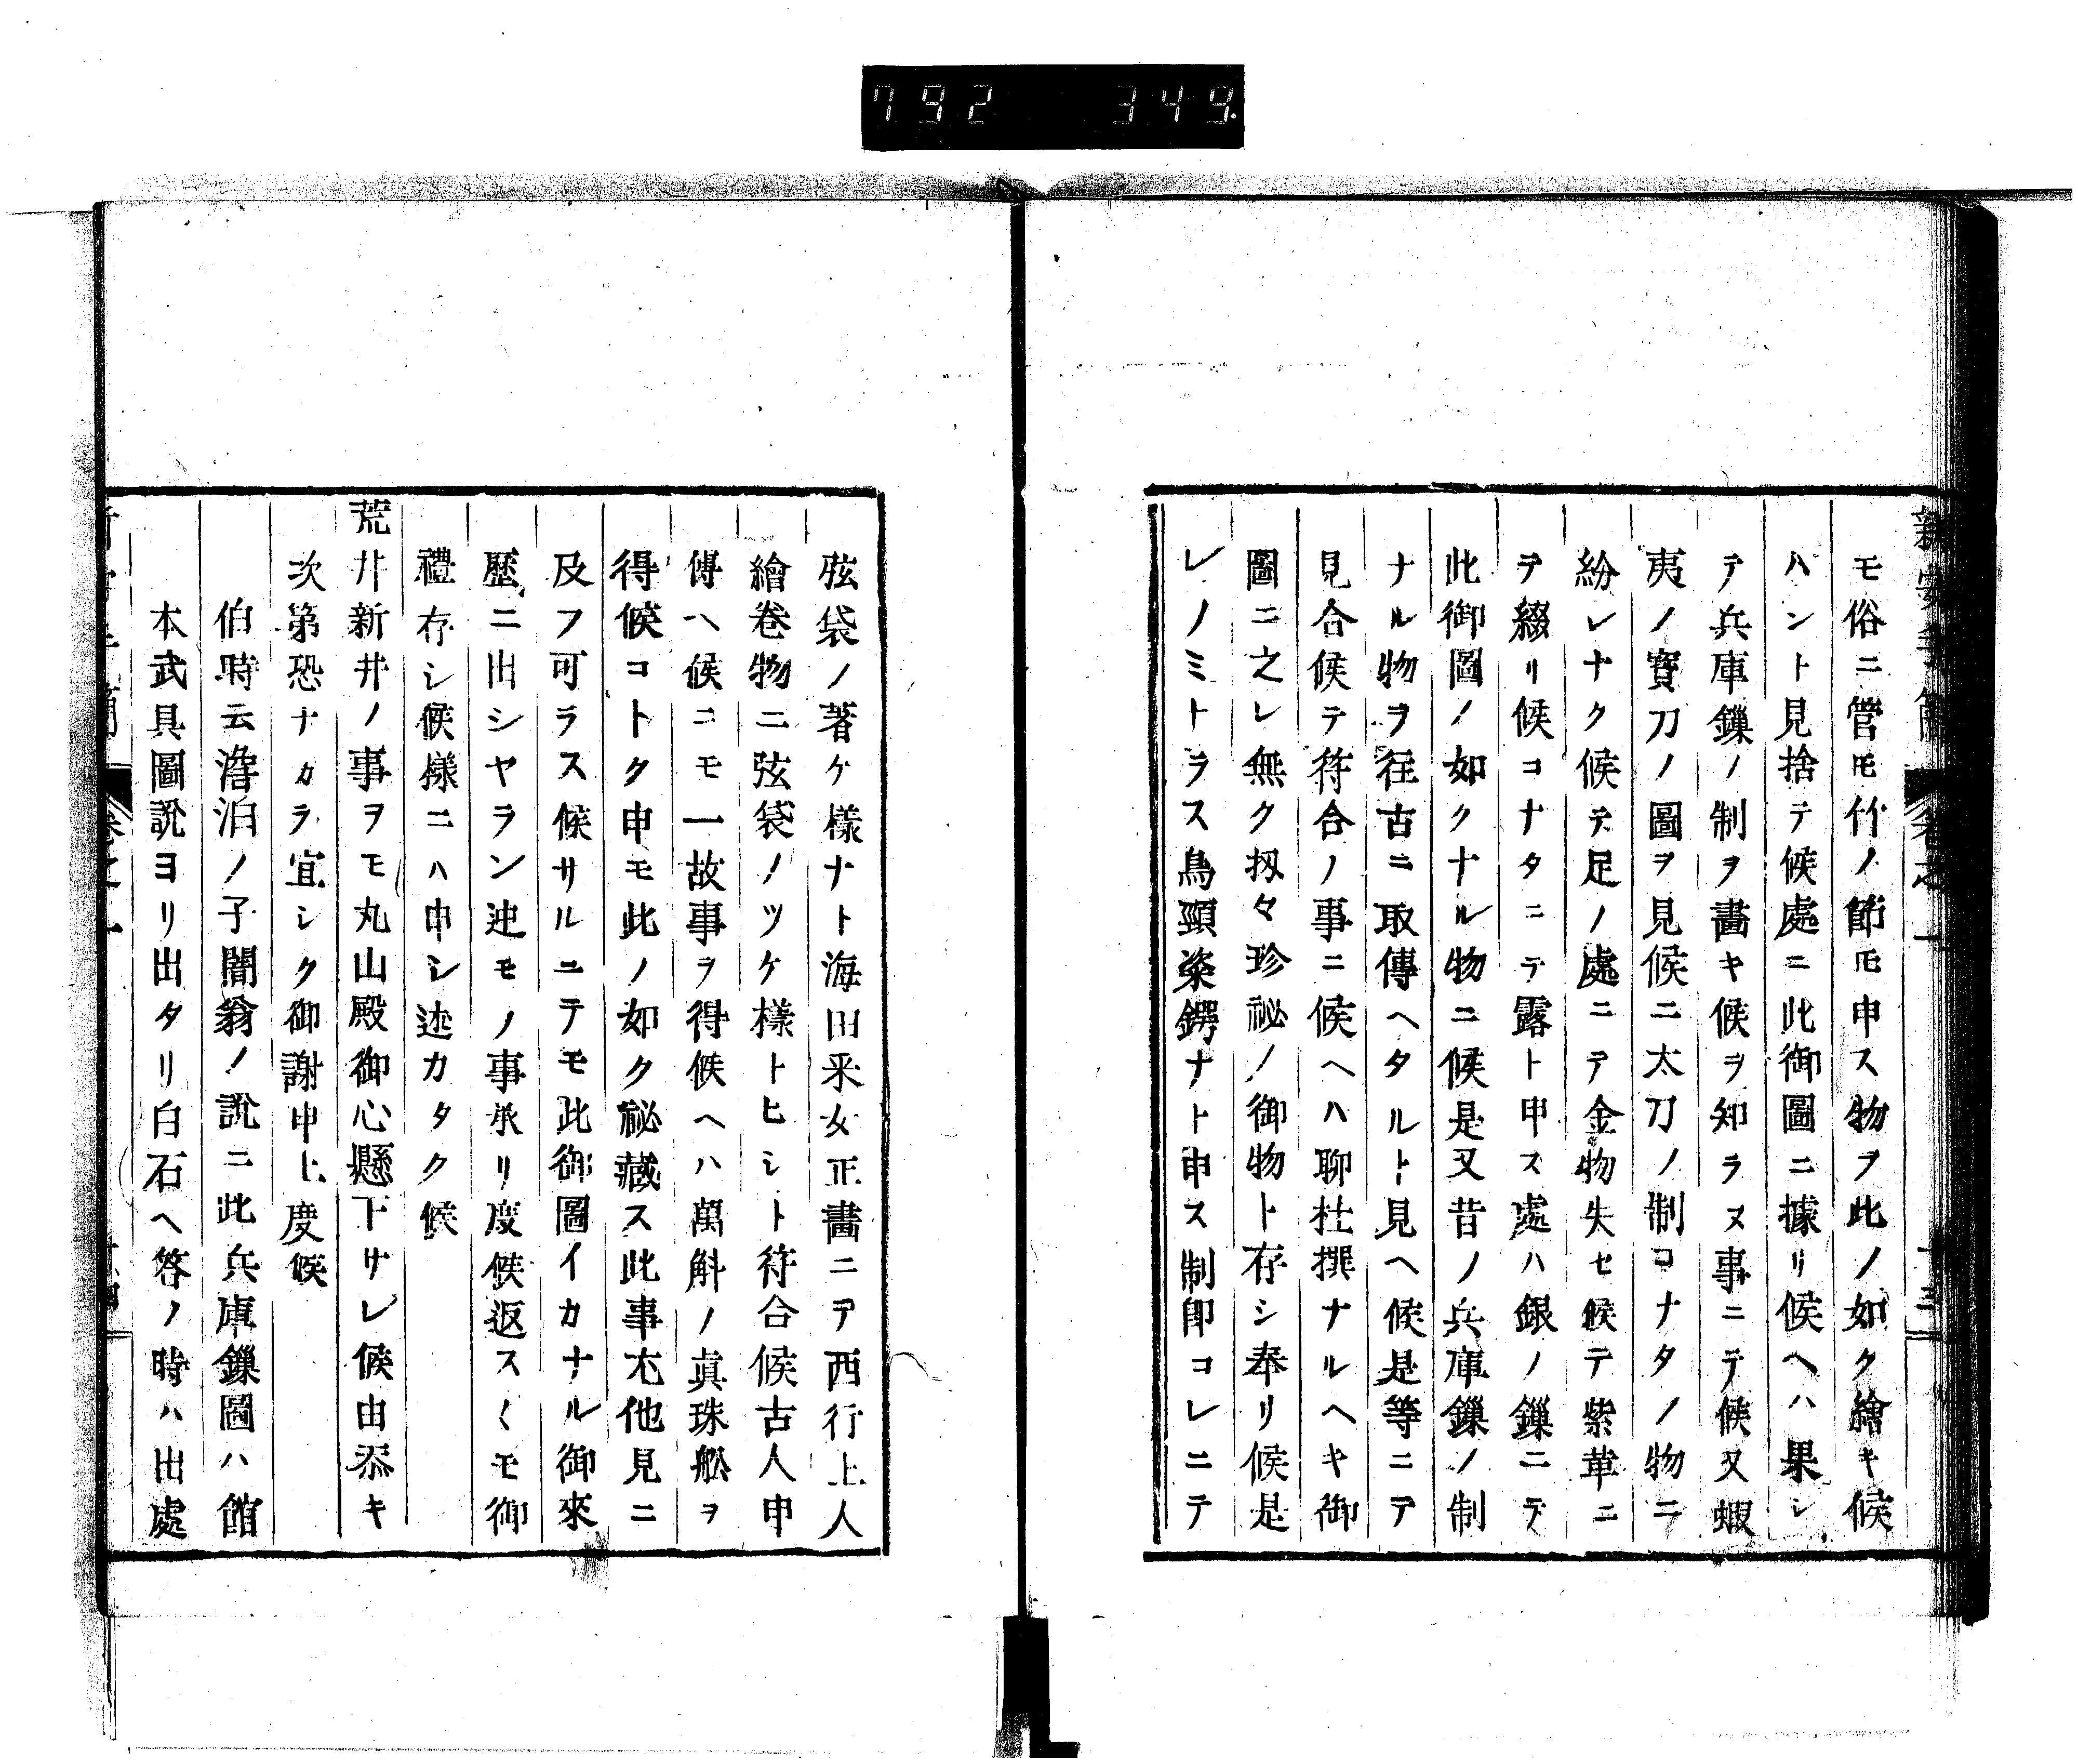 792 349.
新安手簡 卷之一 十三
モ俗ニ管𪜈竹ノ節𪜈申ス物ヲ此ノ如ク繪キ候
ハント見捨テ候處ニ此御圖ニ據リ候ヘハ果シ
テ兵庫鏁ノ制ヲ畫キ候ヲ知ラヌ事ニテ候又蝦
夷ノ寳刀ノ圖ヲ見候ニ太刀ノ制コナタノ物ニ
紛レナク候テ足ノ處ニテ金物失セ候テ紫革ニ
テ綴リ候コナタニテ露ト申ス處ハ銀ノ鏁ニテ
此御圖ノ如クナル物ニ候是又昔ノ兵庫鏁ノ制
ナル物ヲ徃古ニ取傳ヘタルト見ヘ候是等ニテ
見合候テ符合ノ事ニ候ヘハ聊杜撰ナルヘキ御
圖ニ之レ無ク扨々珍祕ノ御物ト存シ奉リ候是
レノミトラス鳥頸楶鍔ナト申ス制卽コレニテ
弦袋ノ著ケ樣ナト海田釆女正畵ニテ西行上人
繪卷物ニ弦袋ノツケ樣トヒシト符合候古人申
傳ヘ候ニモ一故事ヲ得候ヘハ萬斛ノ眞珠舩ヲ
得候コトク申モ此ノ如ク祕藏ス此事尤他見ニ
及フ可ラス候サルニテモ此御圖イカナル御來
歷ニ出シヤラン迚モノ事承リ度候返ス〱モ御
禮存シ候樣ニハ申シ述カタク候
荒井新井ノ事ヲモ丸山殿御心懸下サレ候由忝キ
次第恐ナカラ宜シク御謝申上度候
伯時云澹泊ノ子闇翁ノ說ニ此兵庫鏁圖ハ館
本武具圖說ヨリ出タリ白石ヘ答ノ時ハ出處